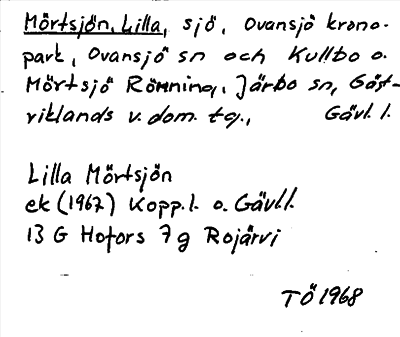 Mörtsjön, Lilla, sjö, Ovansjö krono-
park, Ovansjö sn och Kullbo o.
Mörtsjö Römning, Järbo sn, Gäst-
riklands v. dom. tg., Gävl. l.
Lilla Mörtsjön
ek (1967) Kopp. l. o. Gävl.l.
13 G Hofors 7 g Rojärvi
TÖ 1968